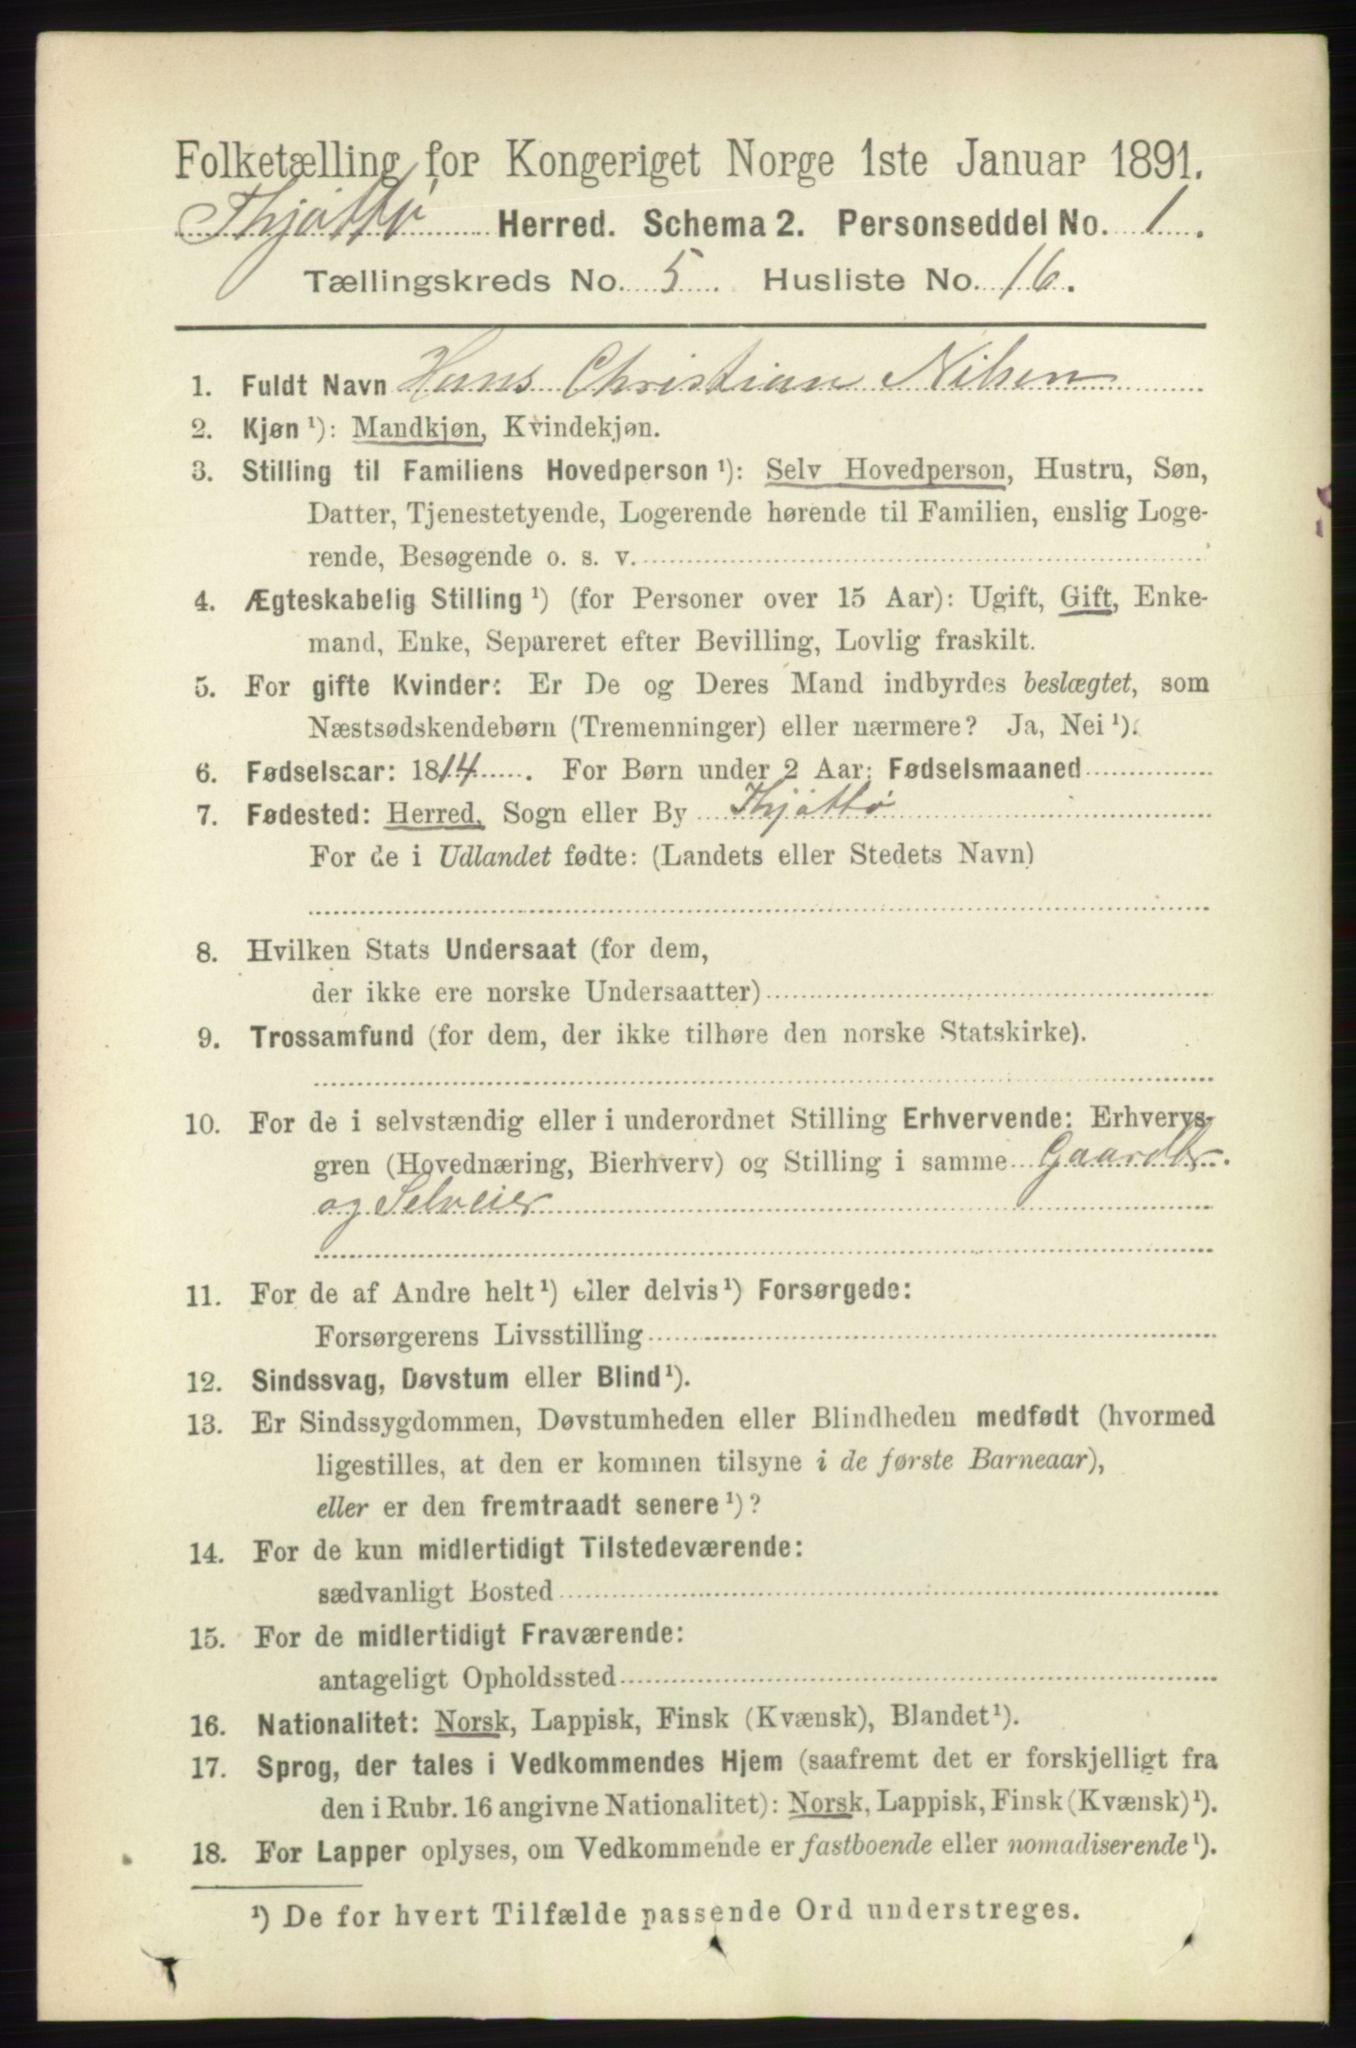 Folketælling for Kongeriget Norge 1ste Januar 1891.
Thjøttø Herred. Schema 2. Personseddel No. 1.
Tællingskreds No. 5. Husliste No. 16.
1. Fuldt Navn Hans Christian Nilsen
2. Kjøn ¹): Mandkjøn, Kvindekjøn.
3. Stilling til Familiens Hovedperson ¹): Selv Hovedperson, Hustru, Søn,
Datter, Tjenestetyende, Logerende hørende til Familien, enslig Loge-
rende, Besøgende o. s. v.
4. Ægteskabelig Stilling ¹) (for Personer over 15 Aar): Ugift, Gift, Enke-
mand, Enke, Separeret efter Bevilling, Lovlig fraskilt.
5. For gifte Kvinder: Er De og Deres Mand indbyrdes beslægtet, som
Næstsødskendebørn (Tremenninger) eller nærmere? Ja, Nei ¹).
6. Fødselsaar: 1814. For Børn under 2 Aar: Fødselsmaaned
7. Fødested: Herred, Sogn eller By Thjøttø
For de i Udlandet fødte: (Landets eller Stedets Navn)
8. Hvilken Stats Undersaat (for dem,
der ikke ere norske Undersaatter)
9. Trossamfund (for dem, der ikke tilhøre den norske Statskirke).
10. For de i selvstændig eller i underordnet Stilling Erhvervende: Erhvervs-
gren (Hovednæring, Bierhverv) og Stilling i samme Gaardbr.
og Selveier
11. For de af Andre helt ¹) eller delvis ¹) Forsørgede:
Forsørgerens Livsstilling
12. Sindssvag, Døvstum eller Blind ¹).
13. Er Sindssygdommen, Døvstumheden eller Blindheden medfødt (hvormed
ligestilles, at den er kommen tilsyne i de første Barneaar),
eller er den fremtraadt senere ¹)?
14. For de kun midlertidigt Tilstedeværende:
sædvanligt Bosted
15. For de midlertidigt Fraværende:
antageligt Opholdssted
16. Nationalitet: Norsk, Lappisk, Finsk (Kvænsk), Blandet ¹).
17. Sprog, der tales i Vedkommendes Hjem (saafremt det er forskjelligt fra
den i Rubr. 16 angivne Nationalitet): Norsk, Lappisk, Finsk (Kvænsk) ¹).
18. For Lapper oplyses, om Vedkommende er fastboende eller nomadiserende ¹).
¹) De for hvert Tilfælde passende Ord understreges.